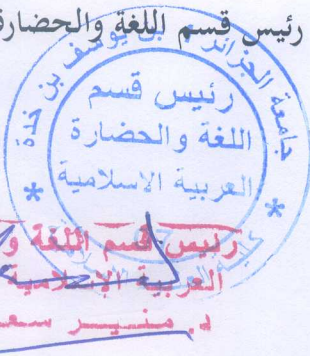 رئيس قسم اللغة والحضارة
جامعة الجزائر بن يوسف بن خدة
رئيس قسم
اللغة والحضارة
العربية الاسلامية
رئيس قسم اللغة و
العربية الإسلامية
د. منير سعد